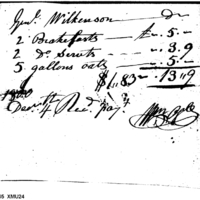 Genl. Wilkenson Dr
2 Brakefasts £ " 5 "
2 Do Servts " 3 . 9
5 gallons oats " 5 "
$1,,83 = 13 . 9
Recd. Pay
Wm
XMU24